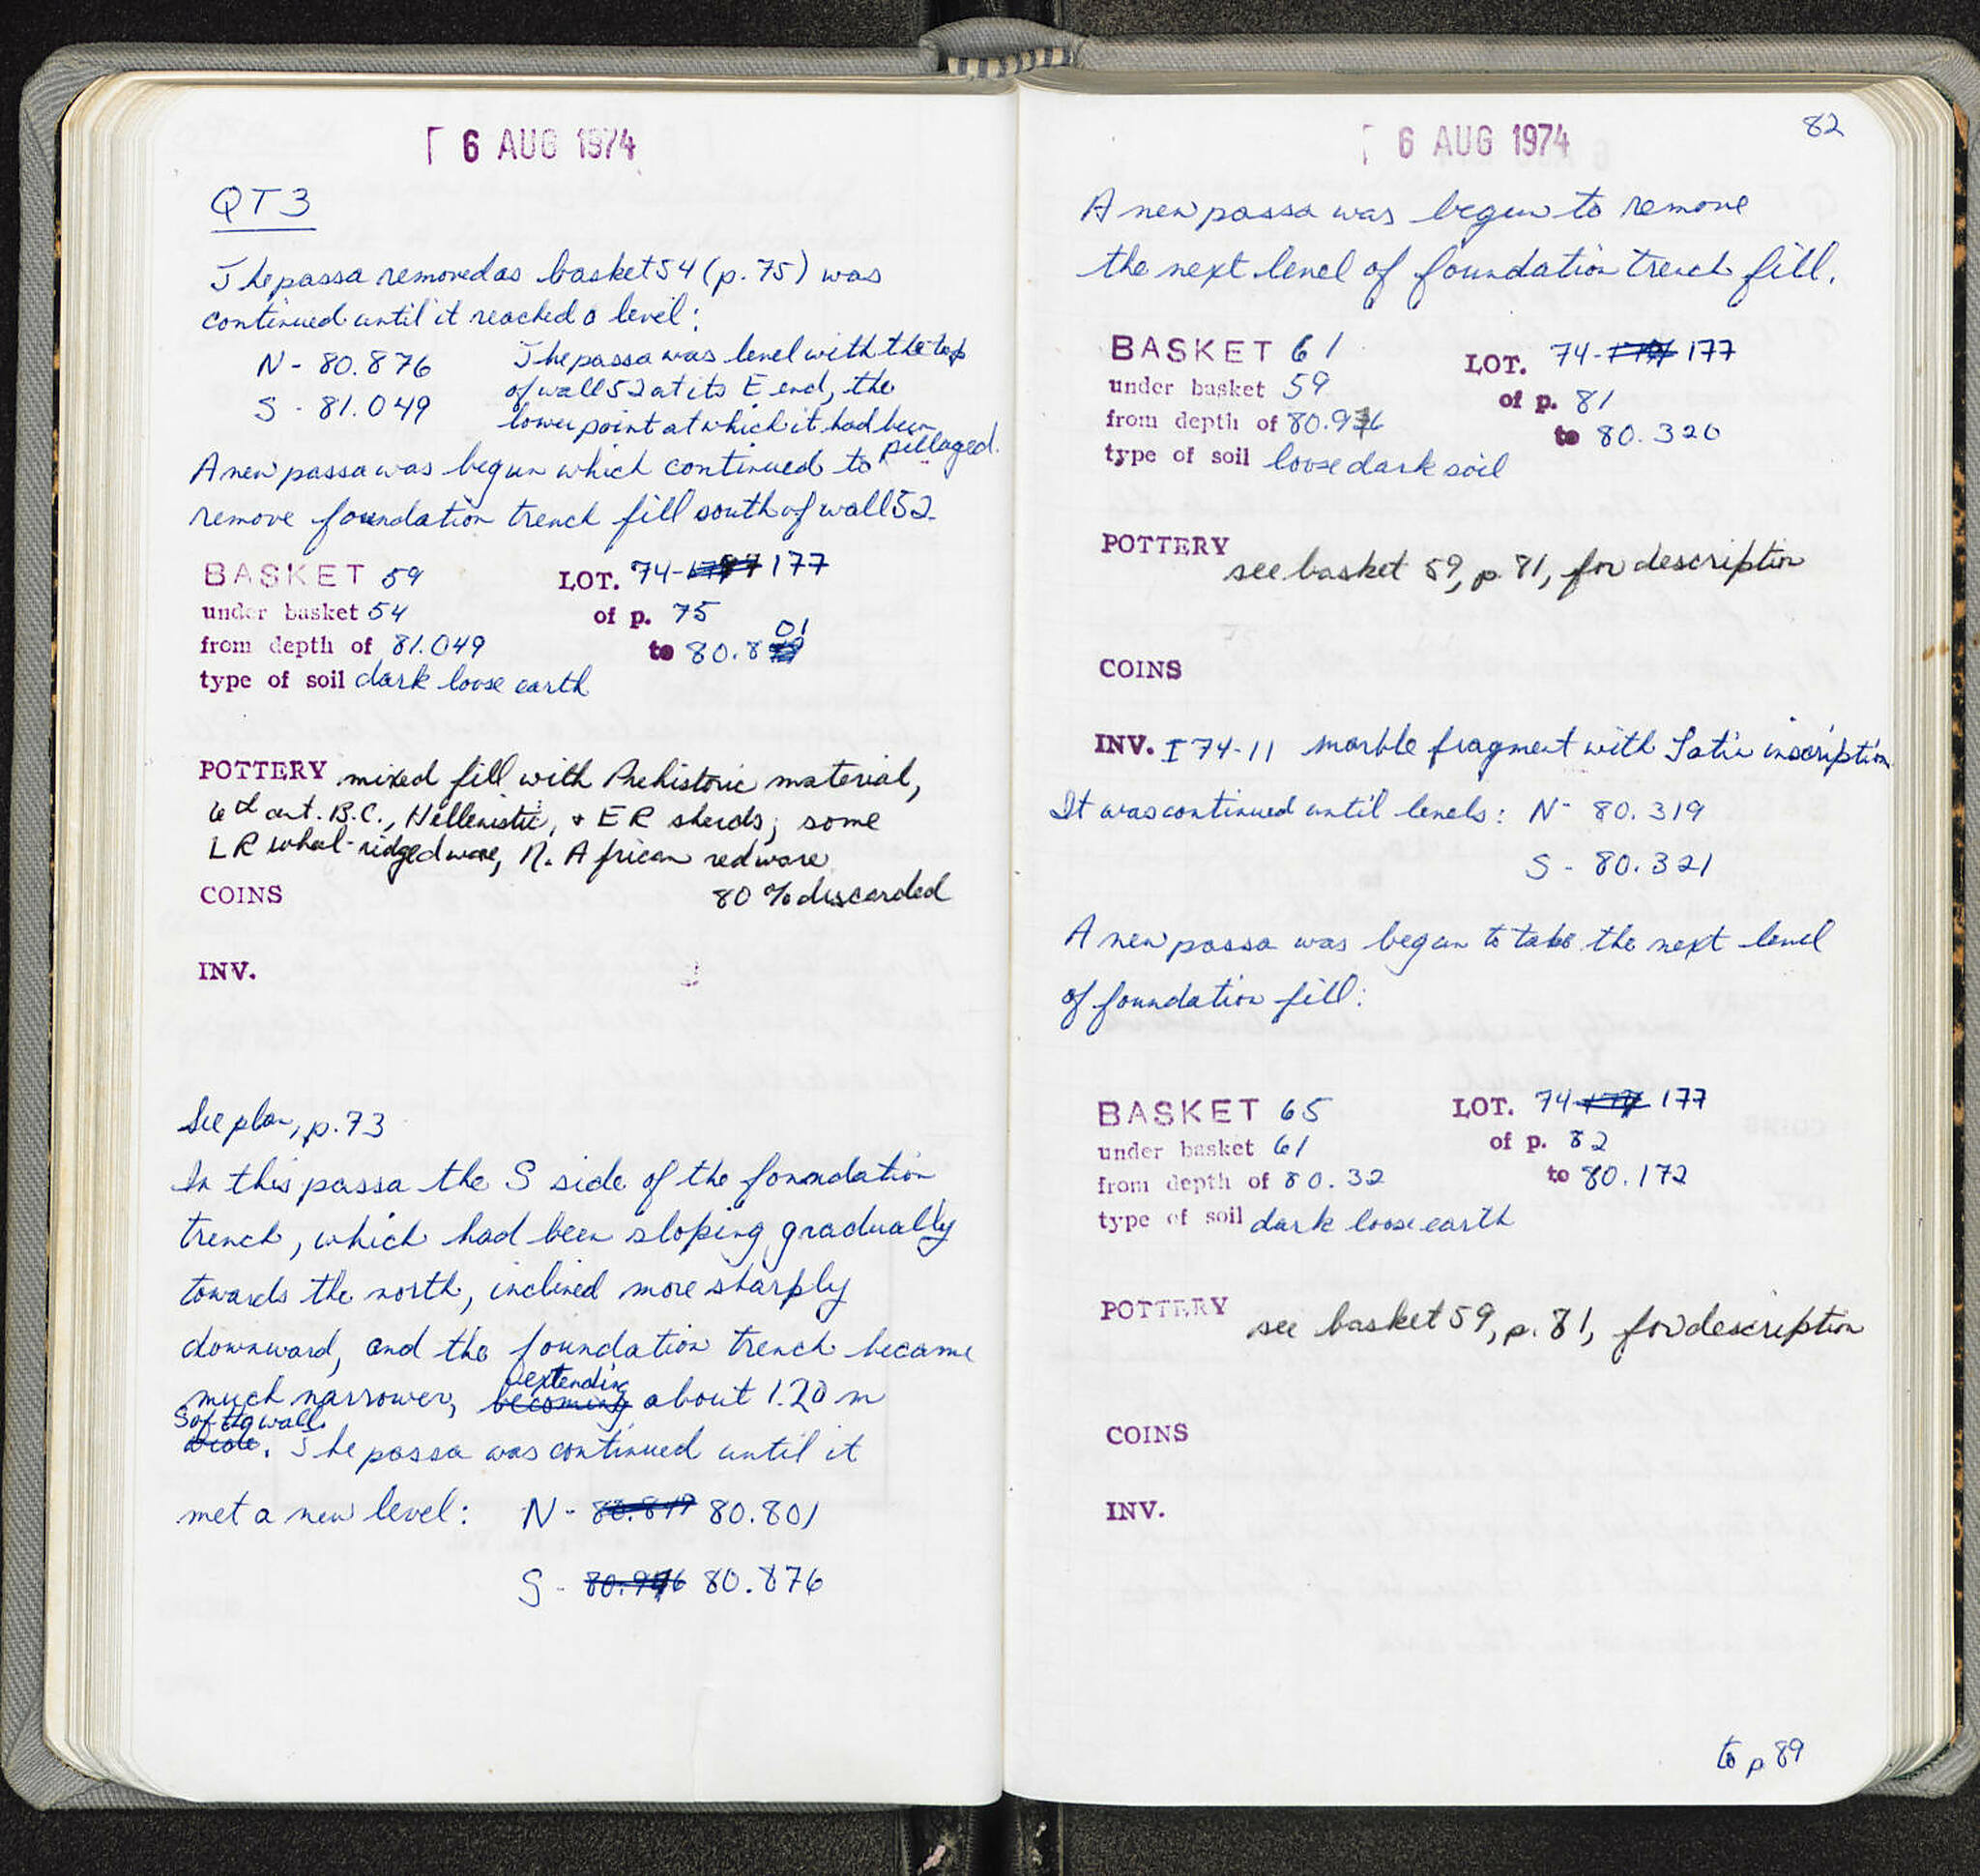 6 AUG 1974
QT3
The passa removed as basket 54 (p. 75) was
continued until it reached a level:
N - 80.876
S - 81.049
The passa was level with the top
of wall 52 at its E end, the
lower point at which it had been
pillaged.
A new passa was begun which continued to
remove foundation trench fill south of wall 52.
BASKET 59 LOT. 74- 177
under basket 54 of p. 75
from depth of 81.049 to 80.801
type of soil dark loose earth
POTTERY mixed fill with Prehistoric material,
6th cent. B.C., Hellenistic, + ER sherds; some
LR wheel-ridged ware, N. African redware
COINS 80% discarded
INV.
See plan, p. 73
In this passa the S side of the foundation
trench, which had been sloping gradually
towards the north, inclined more sharply
downward, and the foundation trench became
much narrower, becoming extending about 1.20 m
wide S of the wall. The passa was continued until it
met a new level: N - 80.801
S - 80.876
6 AUG 1974
82
A new passa was begun to remove
the next level of foundation trench fill.
BASKET 61 LOT. 74- 177
under basket 59 of p. 81
from depth of to 80.320
type of soil loose dark soil
POTTERY see basket 59, p. 81, for description
COINS
INV. I 74-11 marble fragment with Latin inscription
It was continued until levels: N - 80.319
S - 80.321
A new passa was began to take the next level
of foundation fill:
BASKET 65 LOT. 74 177
under basket 61 of p. 82
from depth of 80.32 to 80.172
type of soil dark loose earth
POTTERY see basket 59, p. 81, for description
COINS
INV.
to p 89